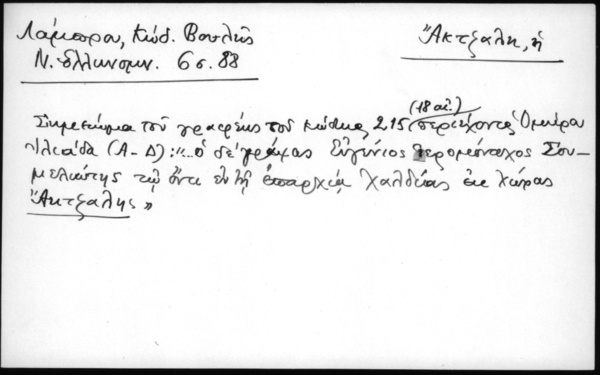 Λάμπρου, Κώδ. Βουλῆς
Ἄκτζαλη, ἡ
Ν. Ἑλληνομν. 6 σ. 88
(18 αἰ.)
Σημείωμα τοῦ γραφέως τοῦ κώδικος 215 περιέχοντος Ὁμήρου
Ἰλιάδα (Α-Δ): "... ὁ δὲ γράψας Εὐγένιος ἱερομόναχος Σου-
μελιώτης τῷ ὄντι ἐν τῇ ἐπαρχίᾳ Χαλδίας ἐκ χώρας
Ἄκτζαλης»